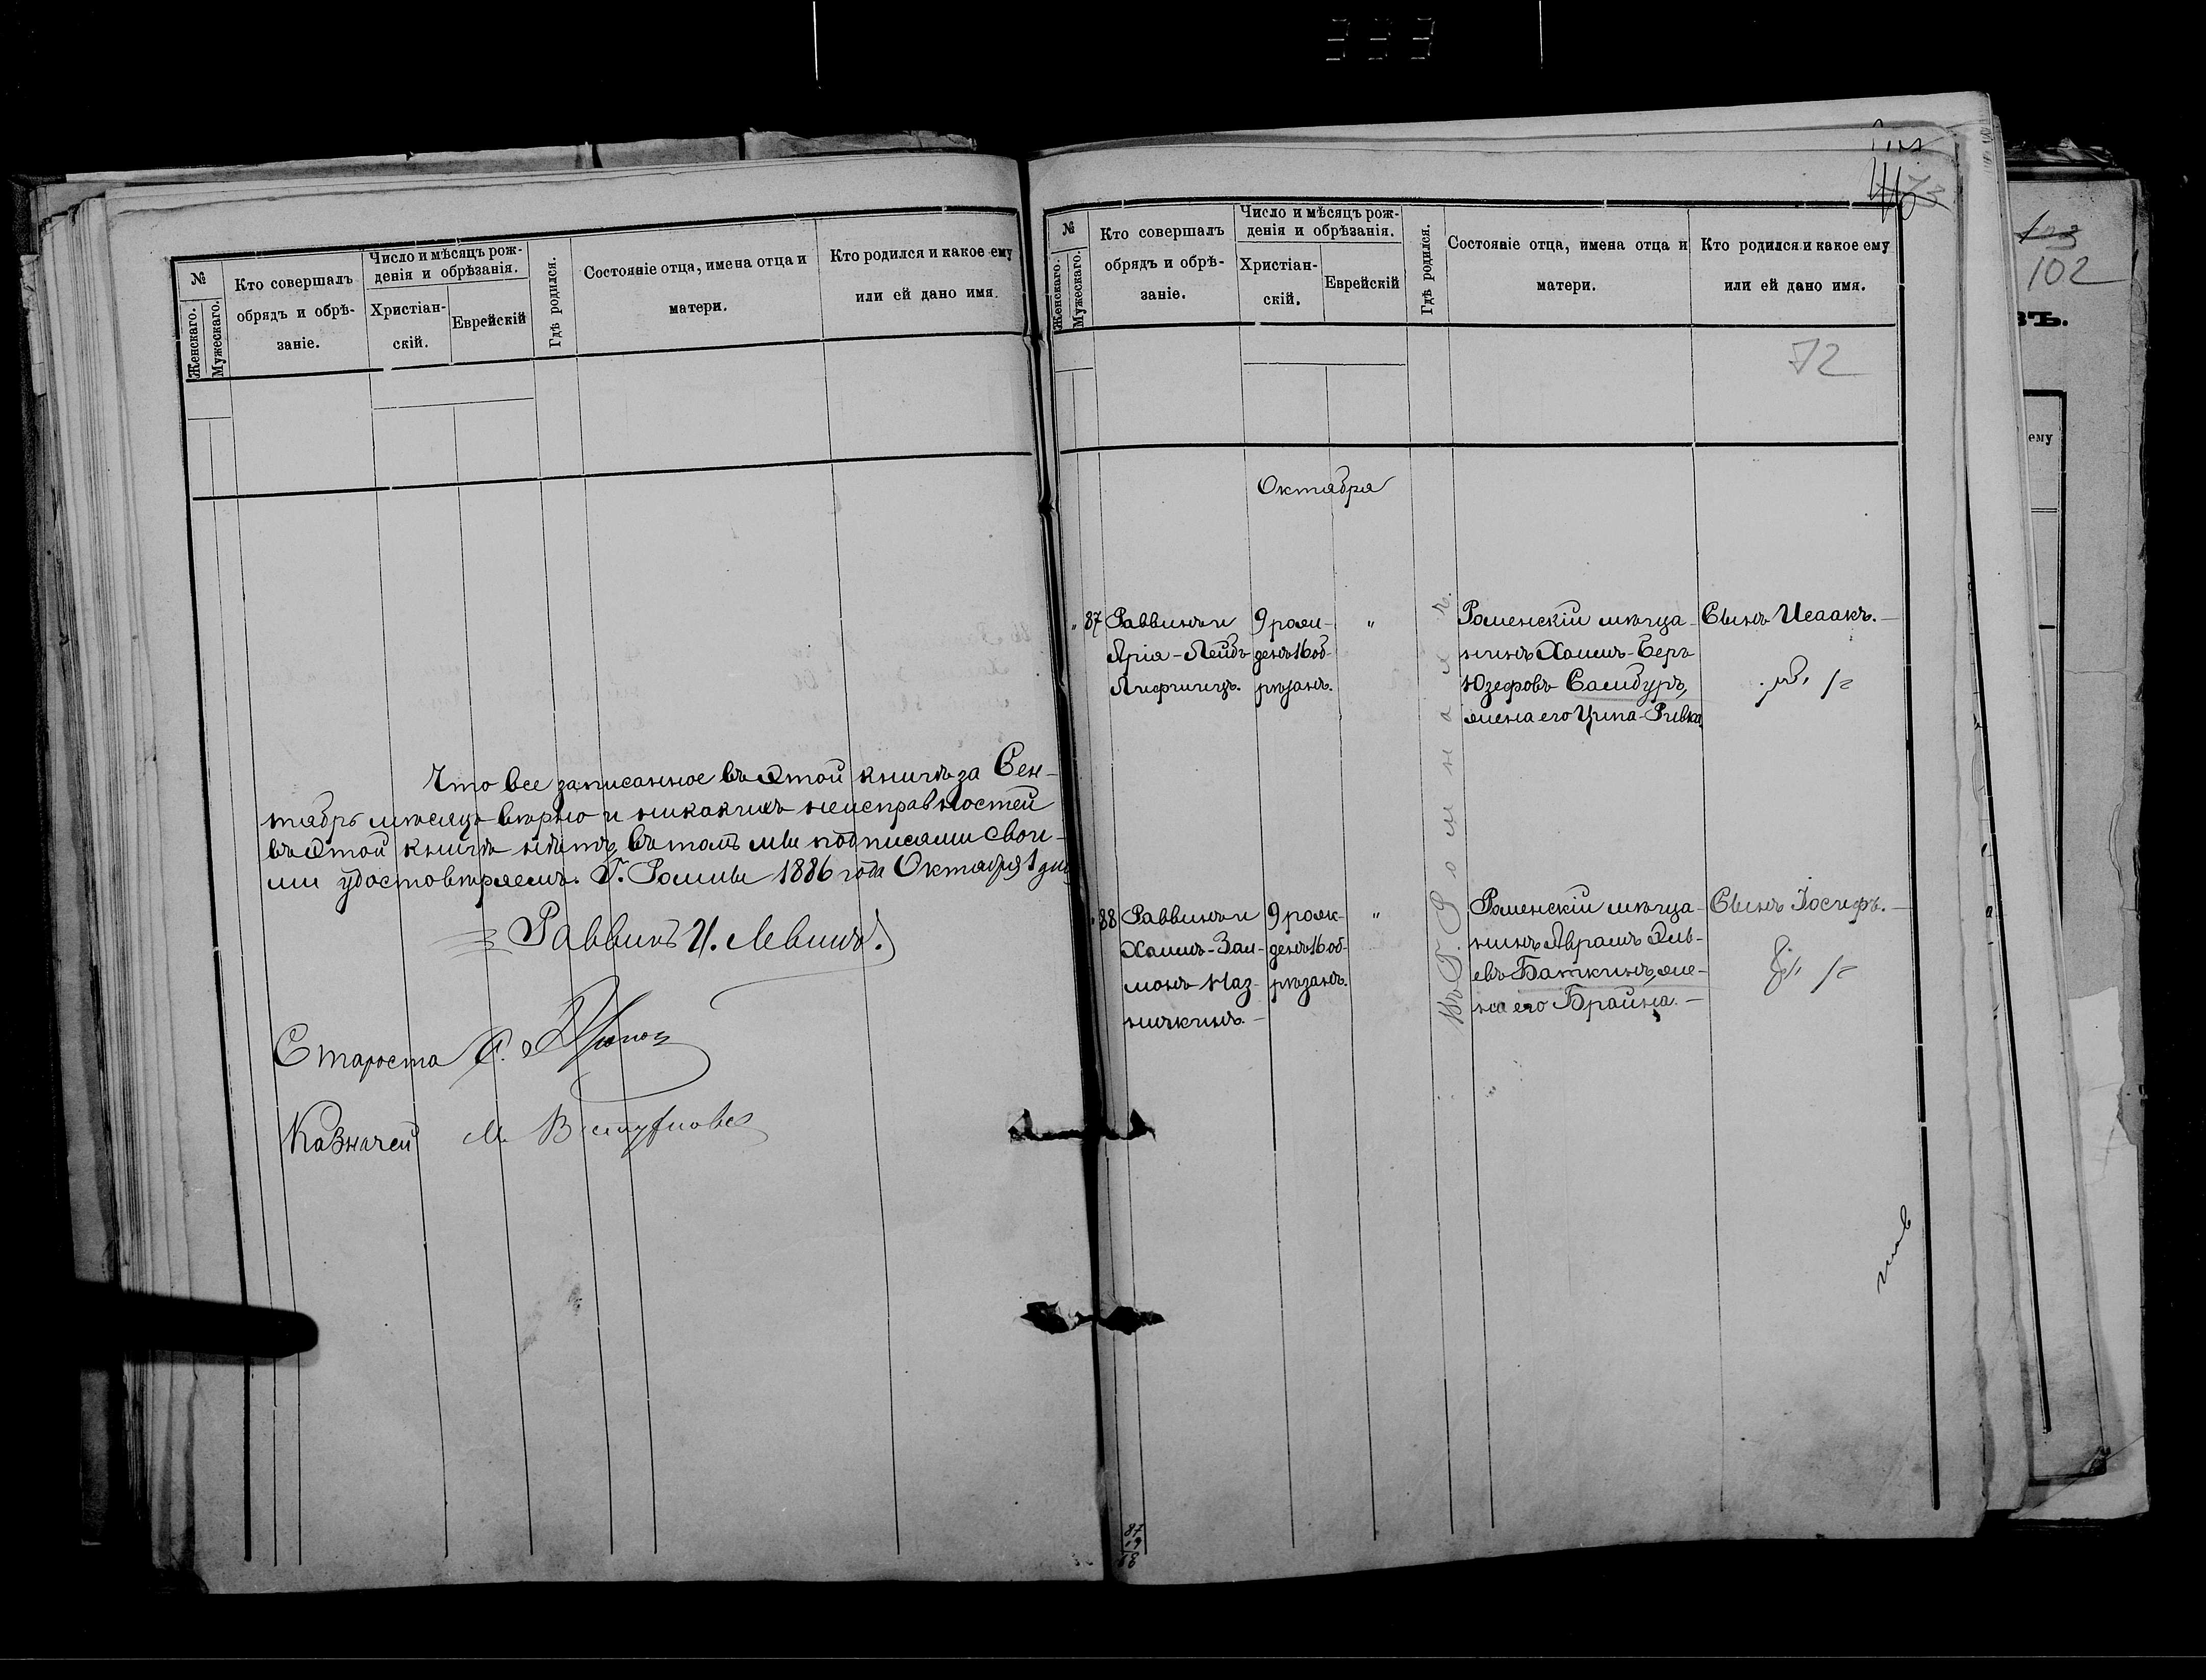 №
Женскаго.
Мужескаго.
Кто совершалъ
обрядъ и обрѣ-
заніе.
Число и мѣсяцъ рож-
денія и обрѣзанія.
Христіан-
скій.
Еврейскій
Гдѣ родился.
Состояніе отца, имена отца и
матери.
Кто родился и какое ему
или ей дано имя.
Что все записанное въ этой книгѣ за Сен-
тябрь мѣсяцъ вѣрно и никакихъ неисправностей
въ этой книгѣ нѣтъ, въ томъ мы подписями свои-
ми удостовѣряемъ. Г. Ромны 1886 года Октября 1 дня
Раввинъ И. Левинъ.
Староста
Казначей М.
№
Женскаго.
Мужескаго.
Кто совершалъ
обрядъ и обрѣ-
заніе.
Число и мѣсяцъ рож-
денія и обрѣзанія.
Христіан-
скій.
Еврейскій
Гдѣ родился.
Состояніе отца, имена отца и
матери.
Кто родился и какое ему
или ей дано имя.
72
Октября
" 87
Раввинъ и
Аріа-Лейбъ
Лифшицъ.
9 рож-
денъ 16 об-
рѣзанъ.
"
Роменскій мѣща-
нинъ Хаимъ-Беръ
Юзефовъ Самбуръ,
жена его Ципа-Ривка.
Сынъ Исаакъ.
Въ Г. Ромнахъ.
" 88
Раввинъ и
Хаимъ-Зал-
монъ Маз-
9 рож-
денъ 16 об-
рѣзанъ.
"
Роменскій мѣща-
нинъ Абрамъ Эль-
евъ Баткинъ, же-
на его Брайна.
Сынъ Іосифъ.
87
102
ВЪ.
ему